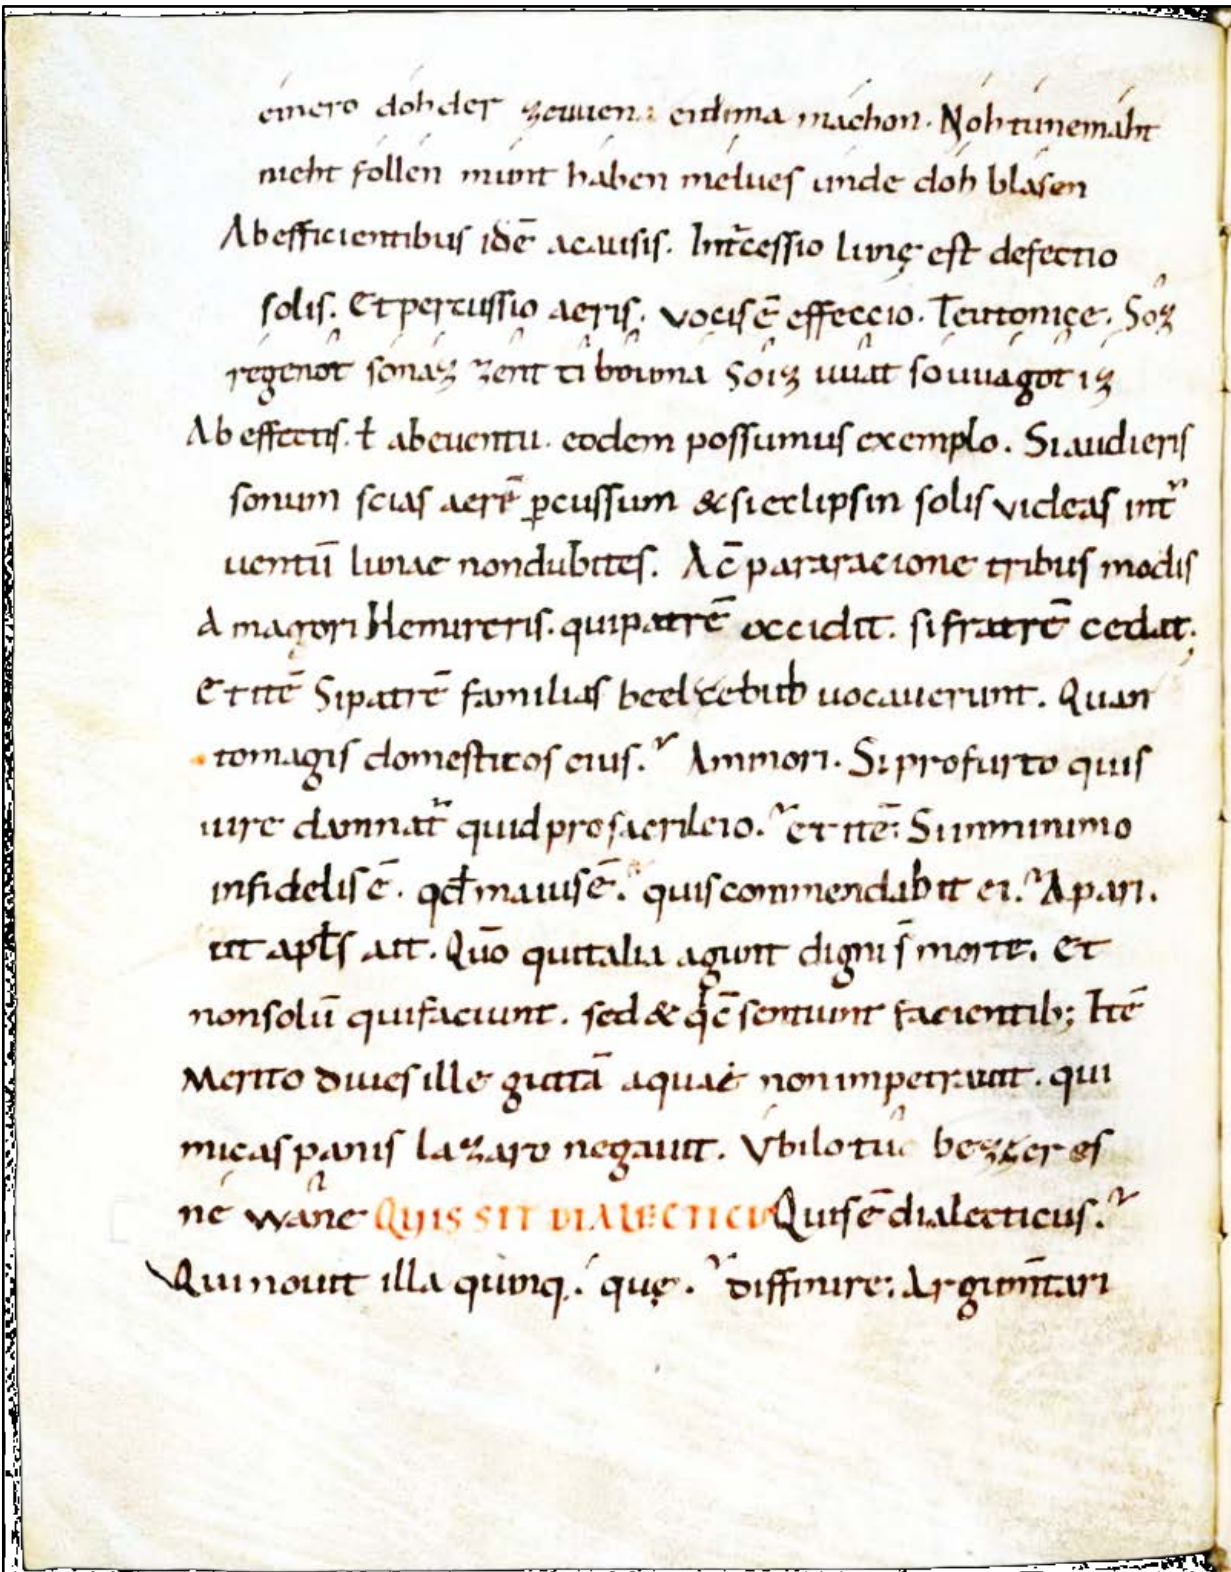 einero dohder zeuuen: eidima máchon. Noh túnemáht
nieht fóllen múnt háben mélues únde doh blásen
Ab efficientibus idē acausis. Int͛cessio lunę est defectio
solis. Et percussio aeris. vocis ē effeccio. Teutonięe. Sóz
régenôt sonâz zent ti bôuma Só iz uuât so uuágôt iz
Ab effectis. ł abeuentu. eodem possumus exemplo. Si audieris
sonum scias aerē ꝑcussum & si eclipsin solis videas int͛
uentū lunae nondubites. Ac̄ pararacione tribus modis
A magori Hemireris. quipatrē occidit. si fratrē cedat;
Et itē Sipatrē familias beelcebub uocauerunt. Quan
tomagis domesticos eius.᷉ Ammori. Si profurto quis
uire damnat͛ quid pro sacrileio.᷉ et itē: Sunminimo
infidelis ē. qđ maius ē.᷉ quis commendabit ei.᷉ Apari.
ut apłs ait. Quō quitalia agunt digni s̄ morte. Et
nonsolū quifaciunt. sed & q̇ c̄sentiunt facientib; Itē
Merito diues ille guttā aquae non impetrauit. qui
micas panis lazaro negauit. Vbilo tû bezzer es
né wâne QUIS SIT DIALECTICU Quis ē dialecticus.᷉
Qui nouit illa quinq.́ quę.᷉ diffinire: Argum̄tari